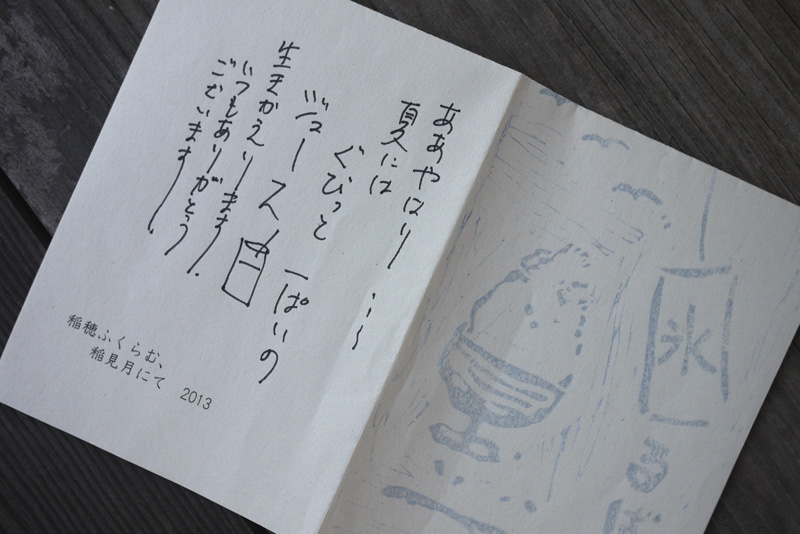 ああやはり…〜
夏には
ぐびっと一ぱいの
ジュース
生きかえります。
いつもありがとう
ございます。
稲穂ふくらむ、
稲見月にて 2013
氷